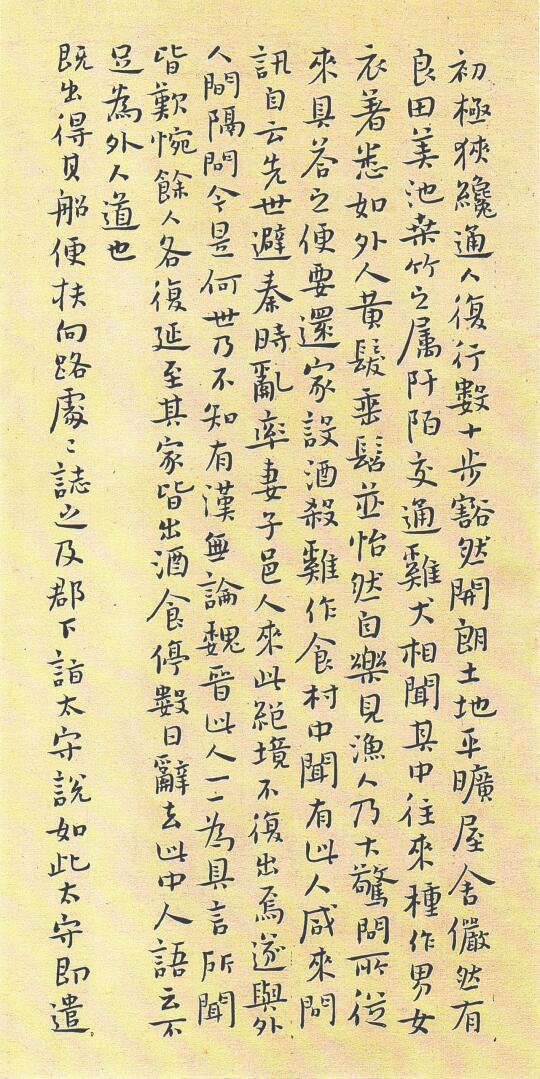 初極狹纔通人復行數十步豁然開朗土地平曠屋舍儼然有
良田美池桑竹之属阡陌交通雞犬相聞其中往來種作男女
衣著悉如外人黃髮垂髫並怡然自樂見漁人乃大驚問所從
來具荅之便要還家設酒殺雞作食村中聞有此人咸來問
訊自云先世避秦時亂率妻子邑人來此絕境不復出焉遂與外
人間隔問今是何世乃不知有漢無論魏晉此人一一為具言所聞
皆歎惋餘人各復延至其家皆出酒食停數日辭去此中人語云不
足為外人道也
既出得其船便扶向路處〻誌之及郡下詣太守說如此太守即遣